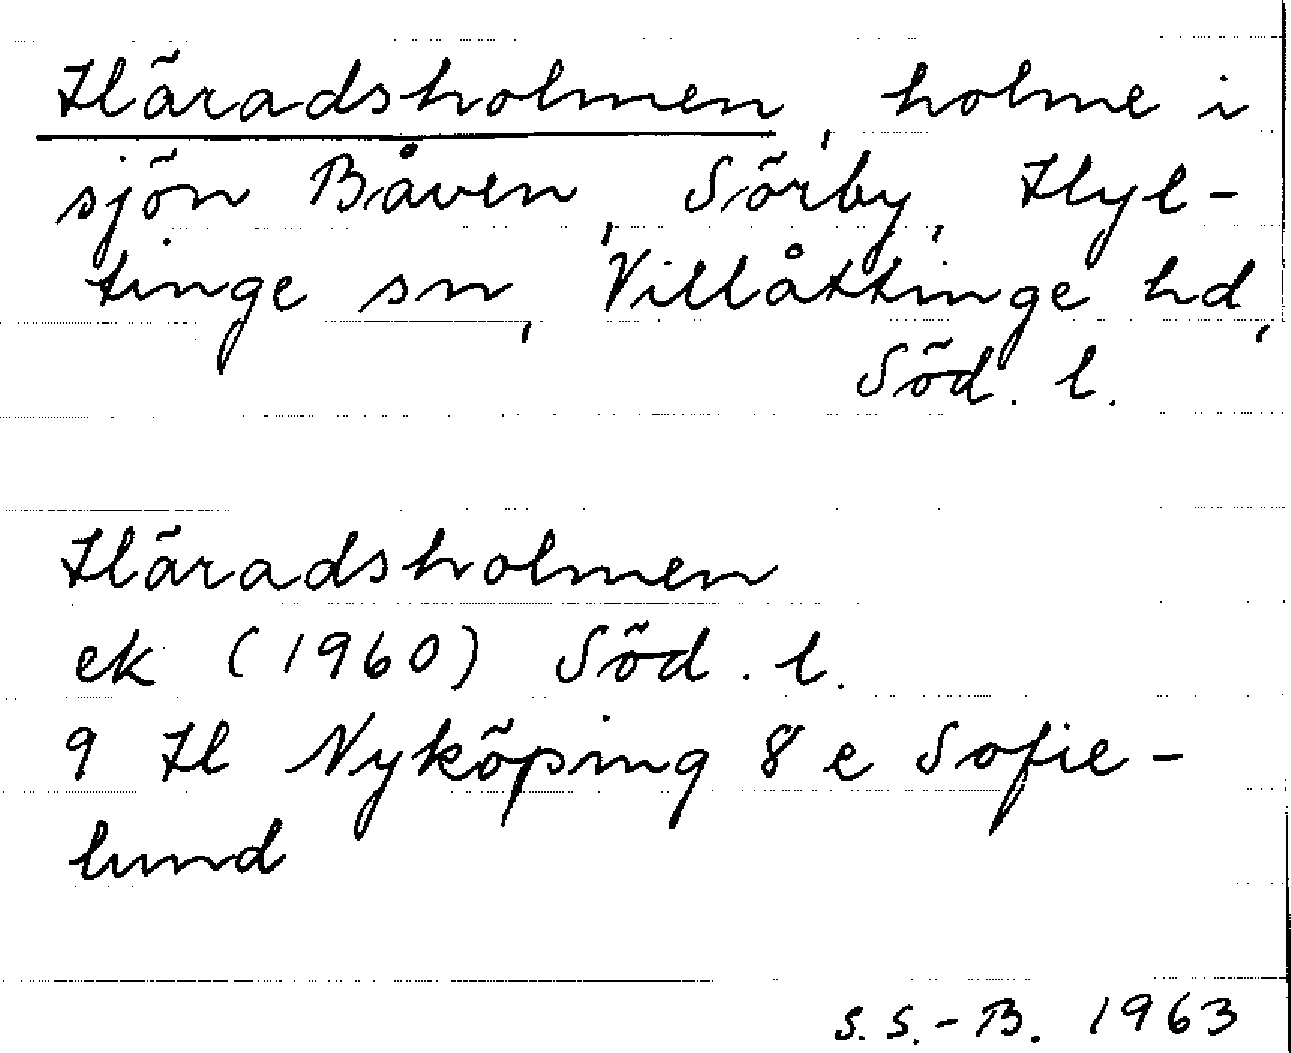 Häradsholmen, holme i
sjön Båven, Sörby, Hyl-
tinge sn, Villåttinge hd,
Söd. l.
Häradsholmen
ek (1960) Söd. l.
9 H Nyköping 8 e Sofie-
lund
S. S.-B. 1963